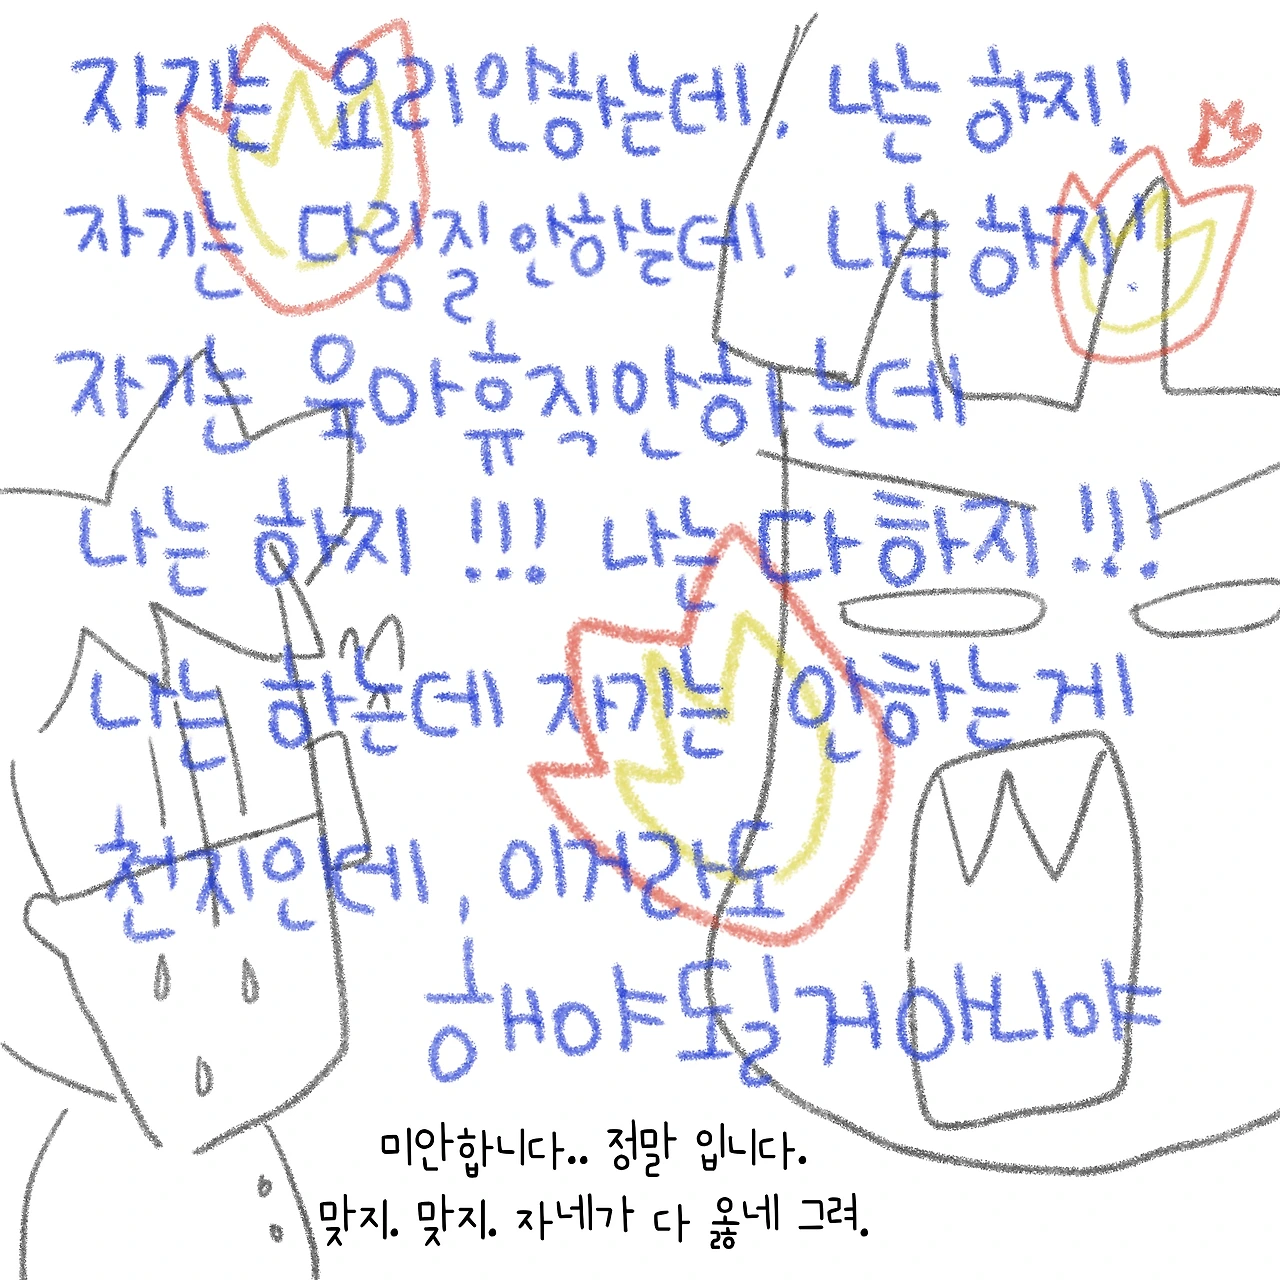 자기는 요리안하는데, 나는 하지!
자기는 다림질 안하는데, 나는 하지!
자기는 육아휴직안하는데
나는 하지!!! 나는 다하지!!!
나는 하는데 자기는 안하는게
천지인데, 이거라도
해야돌거아니야
미안합니다.. 정말 입니다.
맞지. 맞지. 자네가 다 옳네 그려.